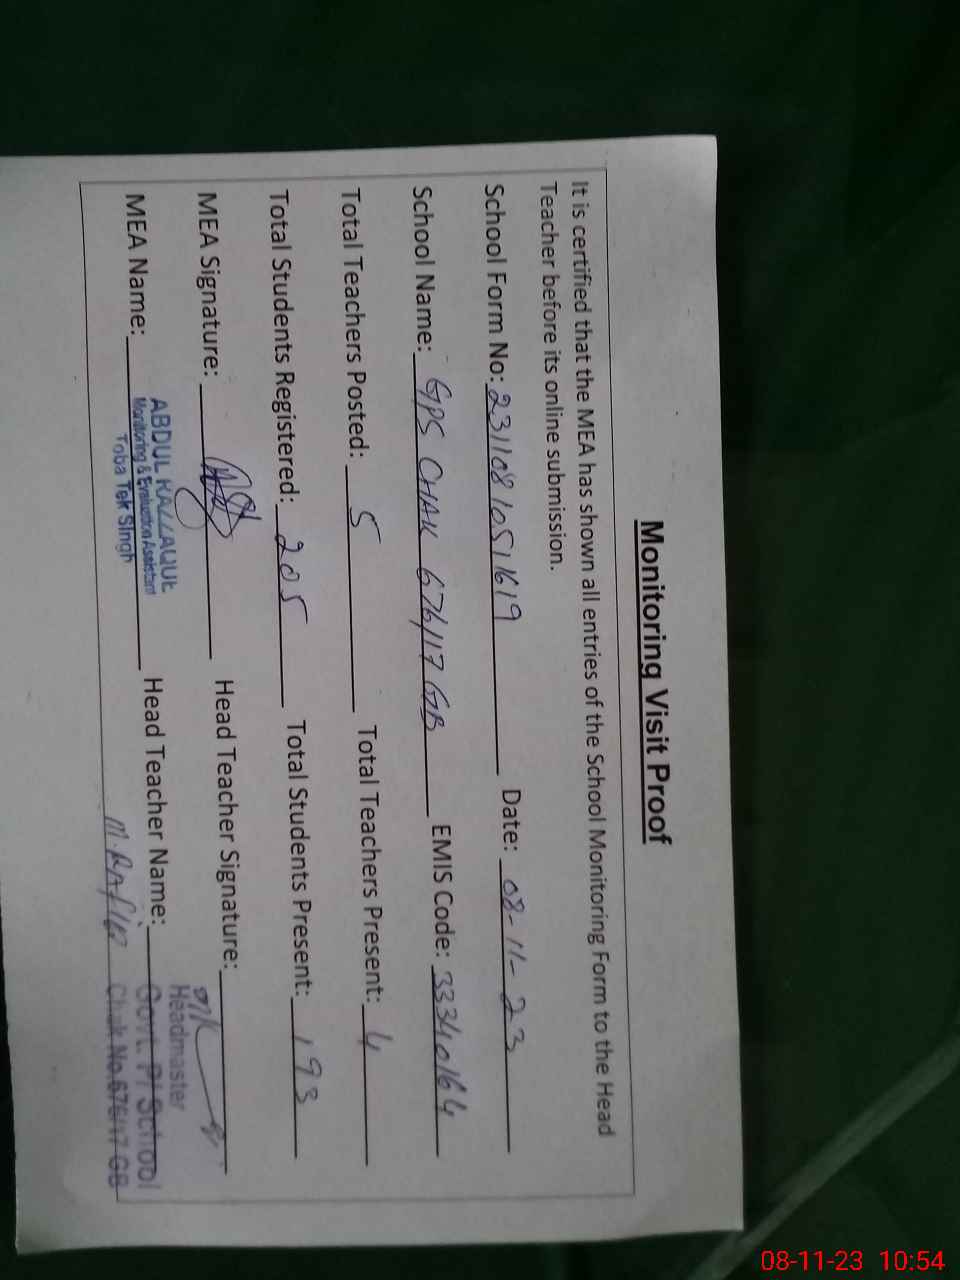 Monitoring Visit Proof
It is certified that the MEA has shown all entries of the School Monitoring Form to the Head
Teacher before its online submission.
School Form No: 231108105 1619 Date: 08-11-23
School Name: GPS CHAK 676/17 GB EMIS Code: 33340164
Total Teachers Posted: 5 Total Teachers Present: 4
Total Students Registered: 205 Total Students Present: 193
MEA Signature: Head Teacher Signature:
MEA Name: Head Teacher Name:
ABDUL RAZZAQUE
Monitoring & Evaluation Assistant
Toba Tek Singh
Headmaster
Govt. P/School
M. Rafiq Chak No.676/17 GB
08-11-23 10:54